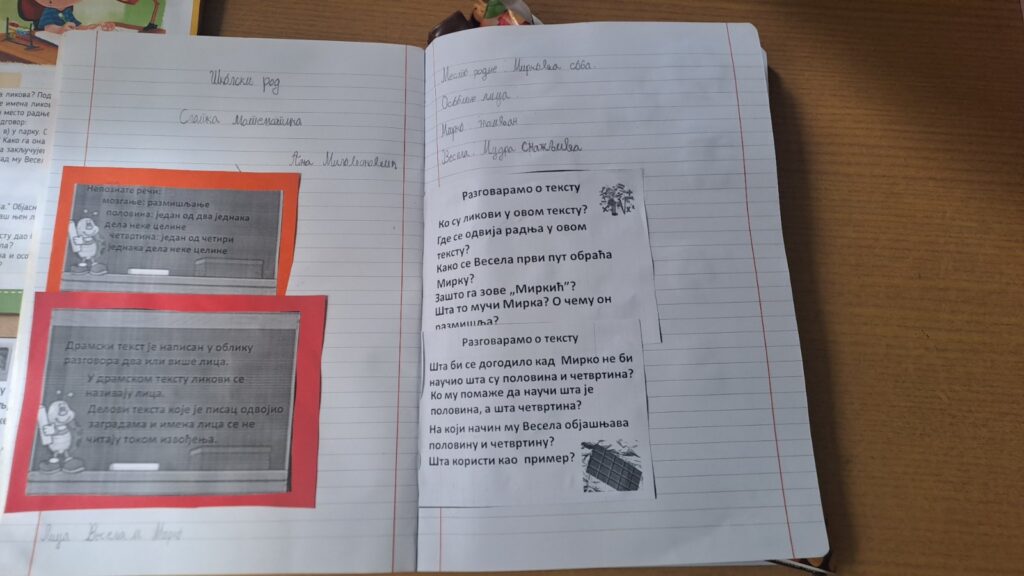 Школски рад
Слатка математика
Ана Миловановић
Непознате речи:
мозгање: размишљање
половина: један од два једнака
дела неке целине
четвртина: један од четири
једнака дела неке целине
Драмски текст је написан у облику
разговора два или више лица.
У драмском тексту ликови се
називају лица.
Делови текста које је писац одвојио
заградама и имена лица се не
читају током извођења.
Лица Весела и Мирко
Место радње: Миркова соба.
Особине лица
Мирко
Весела: Мудра сналажљива
Разговарамо о тексту
Ко су ликови у овом тексту?
Где се одвија радња у овом
тексту?
Како се Весела први пут обраћа
Мирку?
Зашто га зове „Миркић"?
Шта то мучи Мирка? О чему он
размишља?
Разговарамо о тексту
Шта би се догодило кад Мирко не би
научио шта су половина и четвртина?
Ко му помаже да научи шта је
половина, а шта четвртина?
На који начин му Весела објашњава
половину и четвртину?
Шта користи као пример?